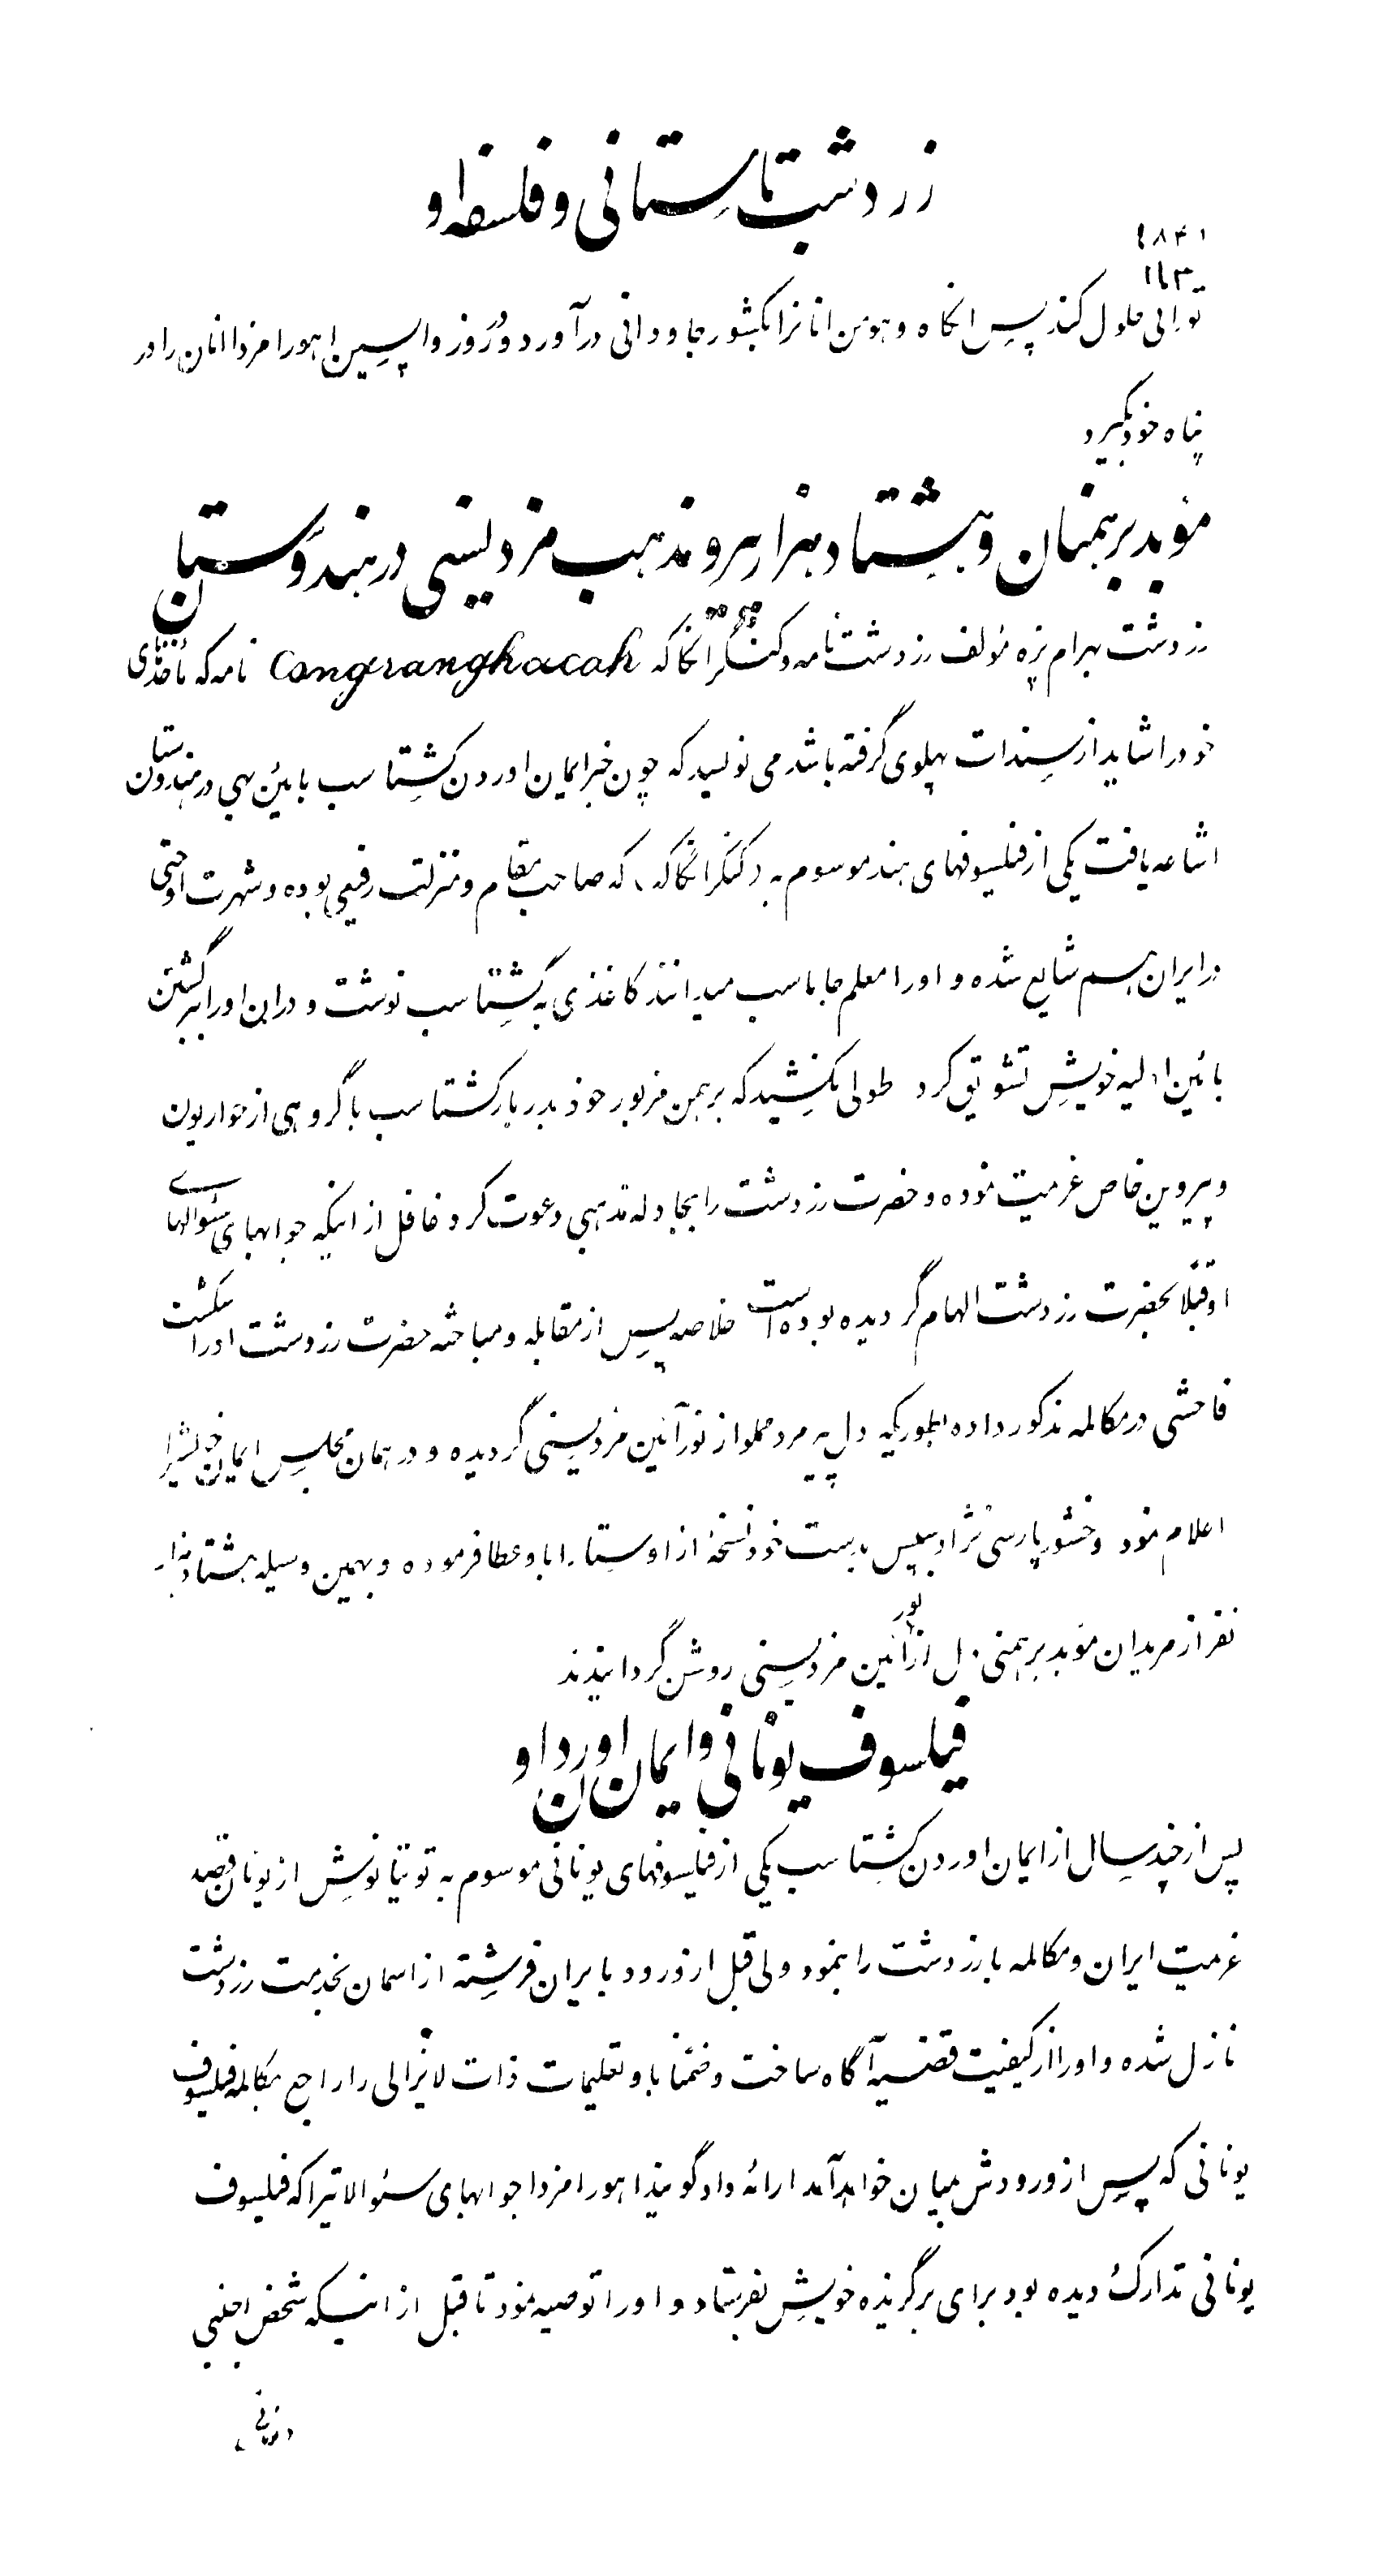 زردشت باستانی و فلسفه او
۸۴۱
۱۱۳۰
نورالی حلول کند پس انگاه وهومن انانرا بکشور جاودانی درآورد و روز واپسین اهورامزدا انان را در
پناه خود بگیرد
مؤبد برهمنان و هشتاد هزار پیرو مذهب مزدیسنی در هندوستان
زردشت بهرام پژه مؤلف زردشت نامه و کنگرانگاکه Congranghacah نامه که مأخذهای
خود را شاید از سندات پهلوی گرفته باشد می نویسد که چون خبر ایمان اوردن گشتاسب بائین بهی در هندوستان
اشاعه یافت یکی از فیلسوفهای هند موسوم به «کنگرانگاکه» که صاحب مقام و منزلت رفیعی بوده و شهرت او حتی
در ایران هم شایع شده و او را معلم جاماسب میدانند کاغذی به گشتاسب نوشت و در ان او را ببرگشتن
بائین اولیه خویش تشویق کرد طولی نکشید که برهمن مزبور خود بدربار گشتاسب با گروهی از حواریون
و پیروین خاص عزمیت نموده و حضرت زردشت را بمجادله مذهبی دعوت کرد غافل از اینکه جوابهای سئوالهای
او قبلاً بحضرت زردشت الهام گردیده بوده است خلاصه پس از مقابله و مباحثه حضرت زردشت او را شکست
فاحشی در مکالمه مذکور داده بطوریکه دل پیر مرد مملو از نور آئین مزدیسنی گردیده و در همان مجلس ایمان خویش را
اعلام نمود وخشور پارسی نژاد سپس بدست خود نسخهٔ از اوستا را باو عطا فرموده و بهمین وسیله هشتاد هزار
نفر از مریدان مؤبد برهمنی دل از نور آئین مزدیسنی روشن گردانیدند
فیلسوف یونانی و ایمان اوردن او
پس از چند سال از ایمان اوردن گشتاسب یکی از فیلسوفهای یونانی موسوم به توتیانوش از یونان قصد
عزمیت ایران و مکالمه با زردشت را بنمود ولی قبل از ورود بایران فرشته از اسمان بخدمت زردشت
نازل شده و او را از کیفیت قضیه آگاه ساخت و ضمناً باو تعلیمات ذات لایزالی را راجع بمکالمه فیلسوف
یونانی که پس از ورودش بمیان خواهد آمد ارائه داد گویند اهورامزدا جوابهای سئوالاتیرا که فیلسوف
یونانی تدارک دیده بود برای برگزیده خویش بفرستاد و او را توصیه نمود تا قبل از اینکه شخص اجنبی